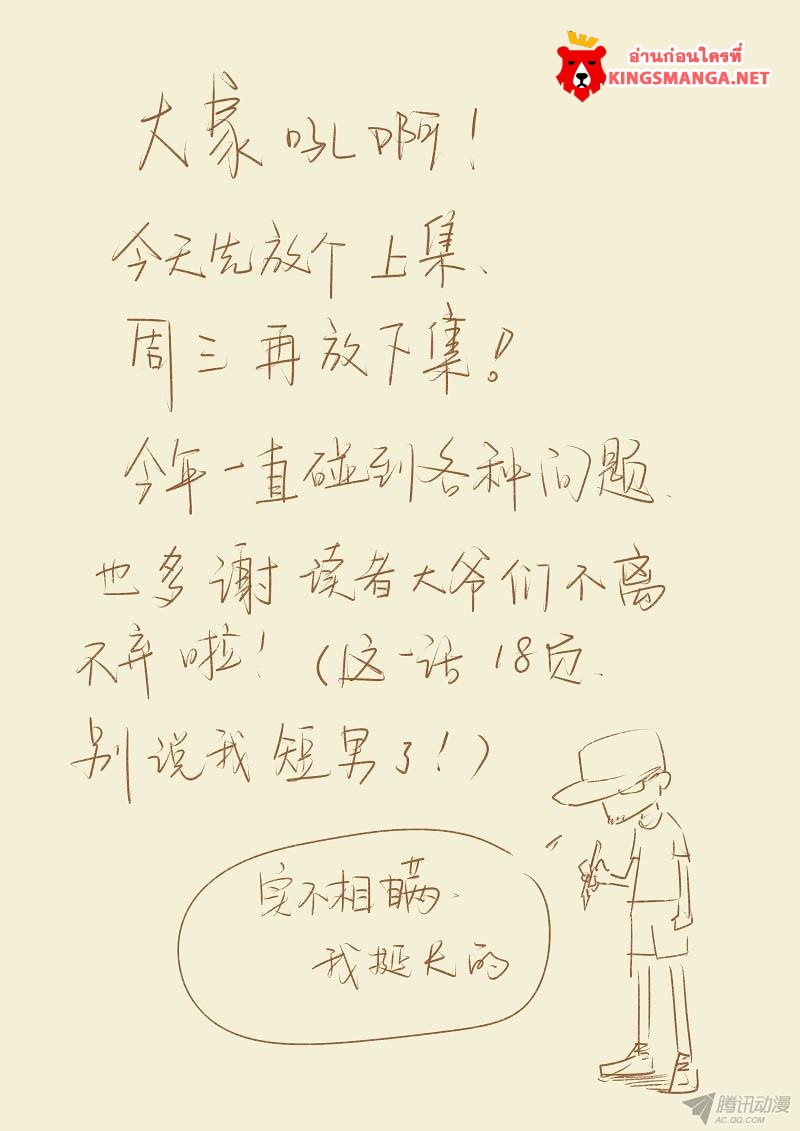 อ่านก่อนใครที่
KINGSMANGA.NET
大家吼啊！
今天先放个上集、
周三再放下集！
今年一直碰到各种问题、
也多谢读者大爷们不离
不弃啦！（这一话18页、
别说我短男了！）
实不相瞒、
我挺长的
腾讯动漫
AC.QQ.COM